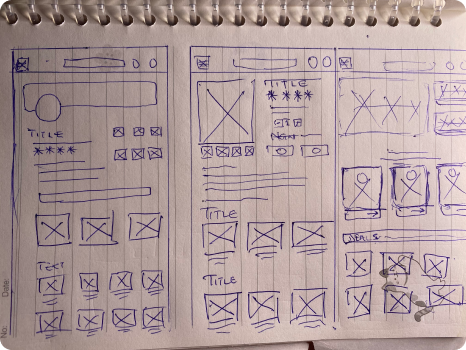 TITLE
****
TEXT
TITLE
****
TITLE
TITLE
DEALS
No:
Date: